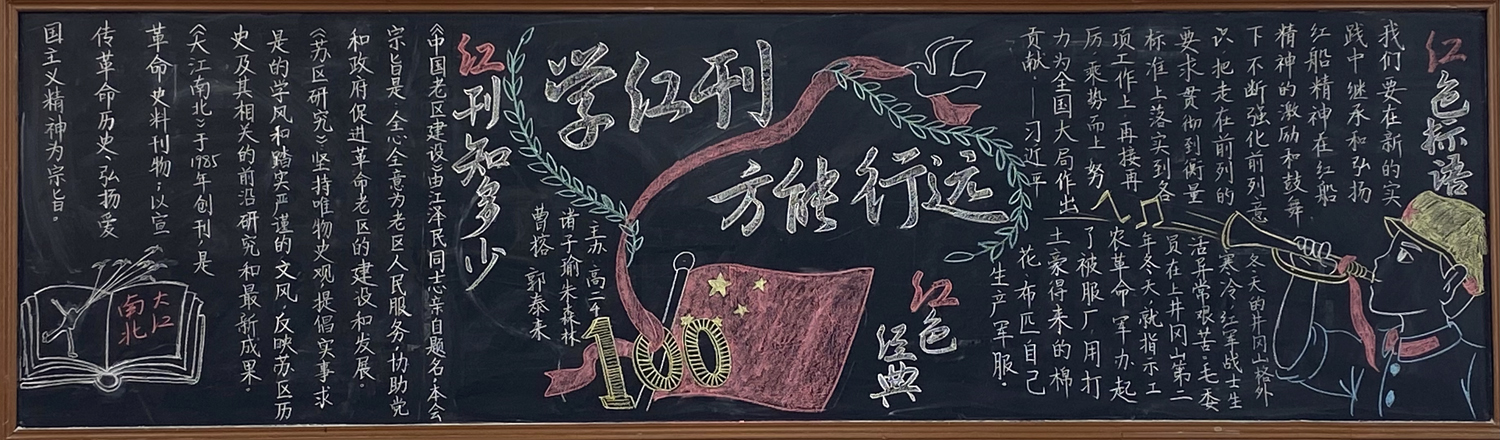 红色标语
我们要在新的实
践中继承和弘扬
红船精神在红船
精神的激励和鼓舞
下不断强化前列意
识把走在前列的
要求贯彻到衡量
标准上落实到各
项工作上再接再
厉乘势而上努
力为全国大局作出
贡献——习近平
冬天的井冈山格外
寒冷红军战士生
活异常艰苦。毛委
员在上井冈山第二
年冬天,就指示工
农革命军办起
了被服厂用打
土豪得来的棉
花布匹自己
生产军服。
红色
经典
学红刊
方能行远
100
王苏 高二4
诸子瑜朱森林
曹榕 郭泰来
红刊知多少
《中国老区建设》由江泽民同志亲自题名。本会
宗旨是:全心全意为老区人民服务,协助党
和政府促进革命老区的建设和发展。
《苏区研究》坚持唯物史观提倡实事求
是的学风和踏实严谨的文风,反映苏区历
史及其相关的前沿研究和最新成果。
《大江南北》于1985年创刊,是
革命史料刊物;以宣
传革命历史、弘扬爱
国主义精神为宗旨。
大江
南北